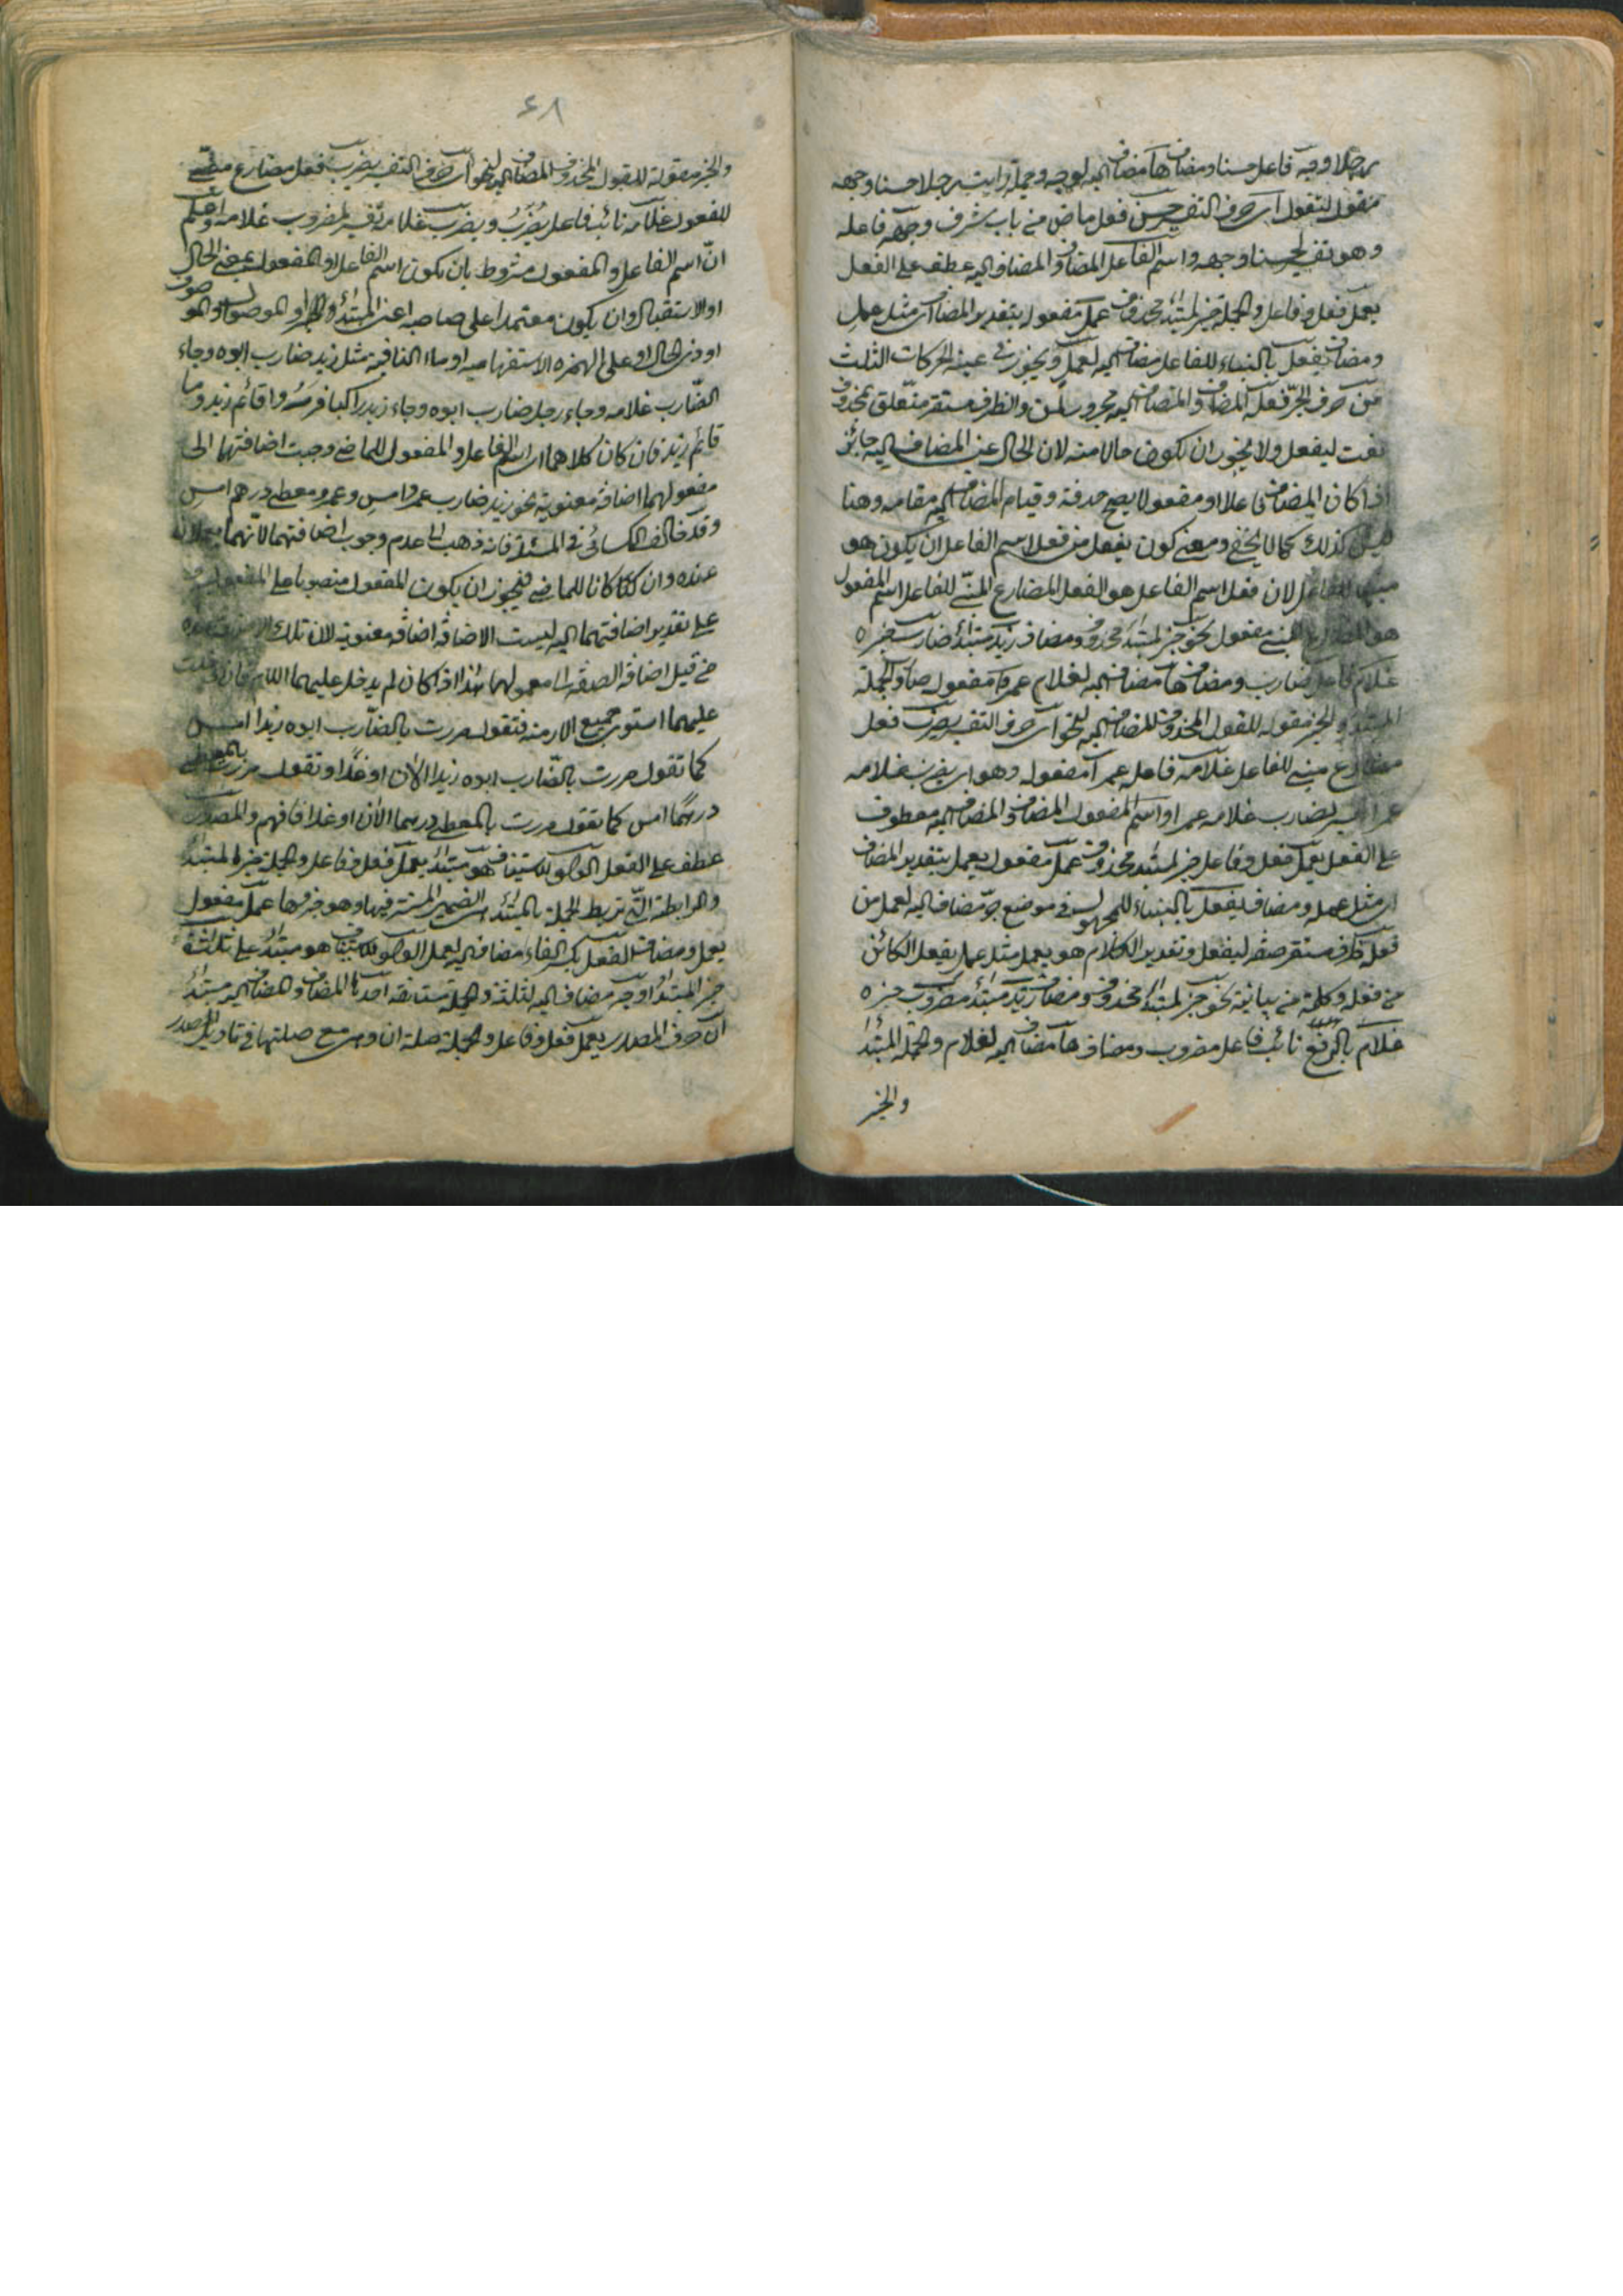 رجلا وجه فاعل حسنا ومضاف ها مضاف اليه لوجه وجملة رايت رجلا حسنا وجهه
مقول لتقول اى حرف التفسير حسن فعل ماض من باب شرف وجهه فاعله
وهو تفسير لحسنا وجهه واسم الفاعل المضاف والمضاف اليه عطف على الفعل
يعمل فعل وفاعل والجملة خبر لمبتدأ محذوف عمل مفعول بتقدير المضاف اى مثل عمل
ومضاف يفعل بالبناء للفاعل مضاف اليه لعمل ويجوز فى عينه الحركات الثلث
من حرف الجر فعله المضاف والمضاف اليه مجرور بمن والظرف مستقر متعلق بمحذوف
نعت ليفعل ولا يجوز ان يكون حالا منه لان الحال عن المضاف اليه جائز
اذا كان المضاف فاعلا او مفعولا يصح حذفه وقيام المضاف اليه مقامه وهنا
ليس كذلك كما لا يخفى ومعنى كون يفعل من فعل اسم الفاعل ان يكون هو
مبنيا للفاعل لان فعل اسم الفاعل هو الفعل المضارع المبنى للفاعل اسم المفعول
هو المضارع المبنى مفعول نحو خبر لمبتدأ محذوف ومضاف زيد مبتدأ ضارب خبره
غلام فاعل ضارب ومضاف ها مضاف اليه لغلام عمرا مفعول ضارب والجملة
المبتدأ والخبر مقوله للقول المحذوف المضاف اليه لنحو اى حرف التفسير يضرب فعل
مضارع مبنى للفاعل غلامه فاعله عمرا مفعوله وهو اى يضرب غلامه
عمرا تفسير لضارب غلامه عمرا واسم المفعول المضاف والمضاف اليه معطوف
على الفعل يعمل فعل وفاعل خبر لمبتدأ محذوف عمل مفعول يعمل بتقدير المضاف
اى مثل عمله ومضاف ليفعل بالبناء للمجهول فى موضع جر مضاف اليه لعمل من
فعله ظرف مستقر صفة ليفعل وتقدير الكلام هو يعمل مثل عمل يفعل الكائن
من فعله وكلمة من بيانية نحو خبر لمبتدأ محذوف ومضاف زيد مبتدأ مضروب خبره
غلام بالرفع نائب فاعل مضروب ومضاف ها مضاف اليه لغلام والجملة المبتدأ
والخبر
٤٨
والخبر مقولة للقول المحذوف المضاف اليه لنحو اى حرف التفسير يضرب فعل مضارع مبنى
للمفعول غلامه نائب فاعل يضرب ويضرب غلامه تفسير لمضروب غلامه واعلم
ان اسم الفاعل والمفعول مشروط بان يكون اسم الفاعل او المفعول بمعنى الحال
او الاستقبال وان يكون معتمدا على صاحبه اعنى المبتدأ والموصول والموصوف
او ذى الحال او على الهمزه الاستفهاميه او ما النافيه مثل زيد ضارب ابوه وجاء
الضارب غلامه وجاء رجل ضارب ابوه وجاء زيد راكبا فرسه واقائم زيد وما
قائم زيد فان كان كلاهما اى اسم الفاعل والمفعول للماضى وجبت اضافتهما الى
مفعولهما اضافة معنوية نحو زيد ضارب عمرو امس وعمرو معطى درهم امس
وقد خالف الكسائى فى المسئلة فانه ذهب الى عدم وجوب اضافتهما لانهما يعملان
عنده وان كانا للماضى فيجوز ان يكون المفعول منصوبا على المفعولية
على تقدير اضافتهما اليه ليست الاضافة اضافة معنوية لان تلك الاضافة عنده
من قبيل اضافة الصفة الى معمولهما هذا اذا كان لم يدخل عليهما اللام فان دخلت
عليهما استوى جميع الازمنة فتقول مررت بالضارب ابوه زيدا امس
كما تقول مررت بالضارب ابوه زيدا الآن او غدا وتقول مررت بالمعطى
درهما امس كما تقول مررت بالمعطى درهما الآن او غدا فافهم والمصدر
عطف على الفعل الواو للاستيناف هو مبتدأ يعمل فعل وفاعل والجملة خبره المبتدأ
والرابطة التى تربط الجملة بالمبتدأ هى الضمير المستتر فيها وهو خبر فها عمل مفعول
يعمل ومضاف الفعل بكسر الفاء مضاف اليه لعمل الواو للاستيناف هو مبتدأ على ثلاثة
خبر المبتدأ اوجه مضاف اليه لثلثة والجملة مستانفة احدها المضاف والمضاف اليه مبتدأ
ان حرف المصدر يعمل فعل وفاعل والجملة صلة ان وهى مع صلتها فى تاويل المصدر